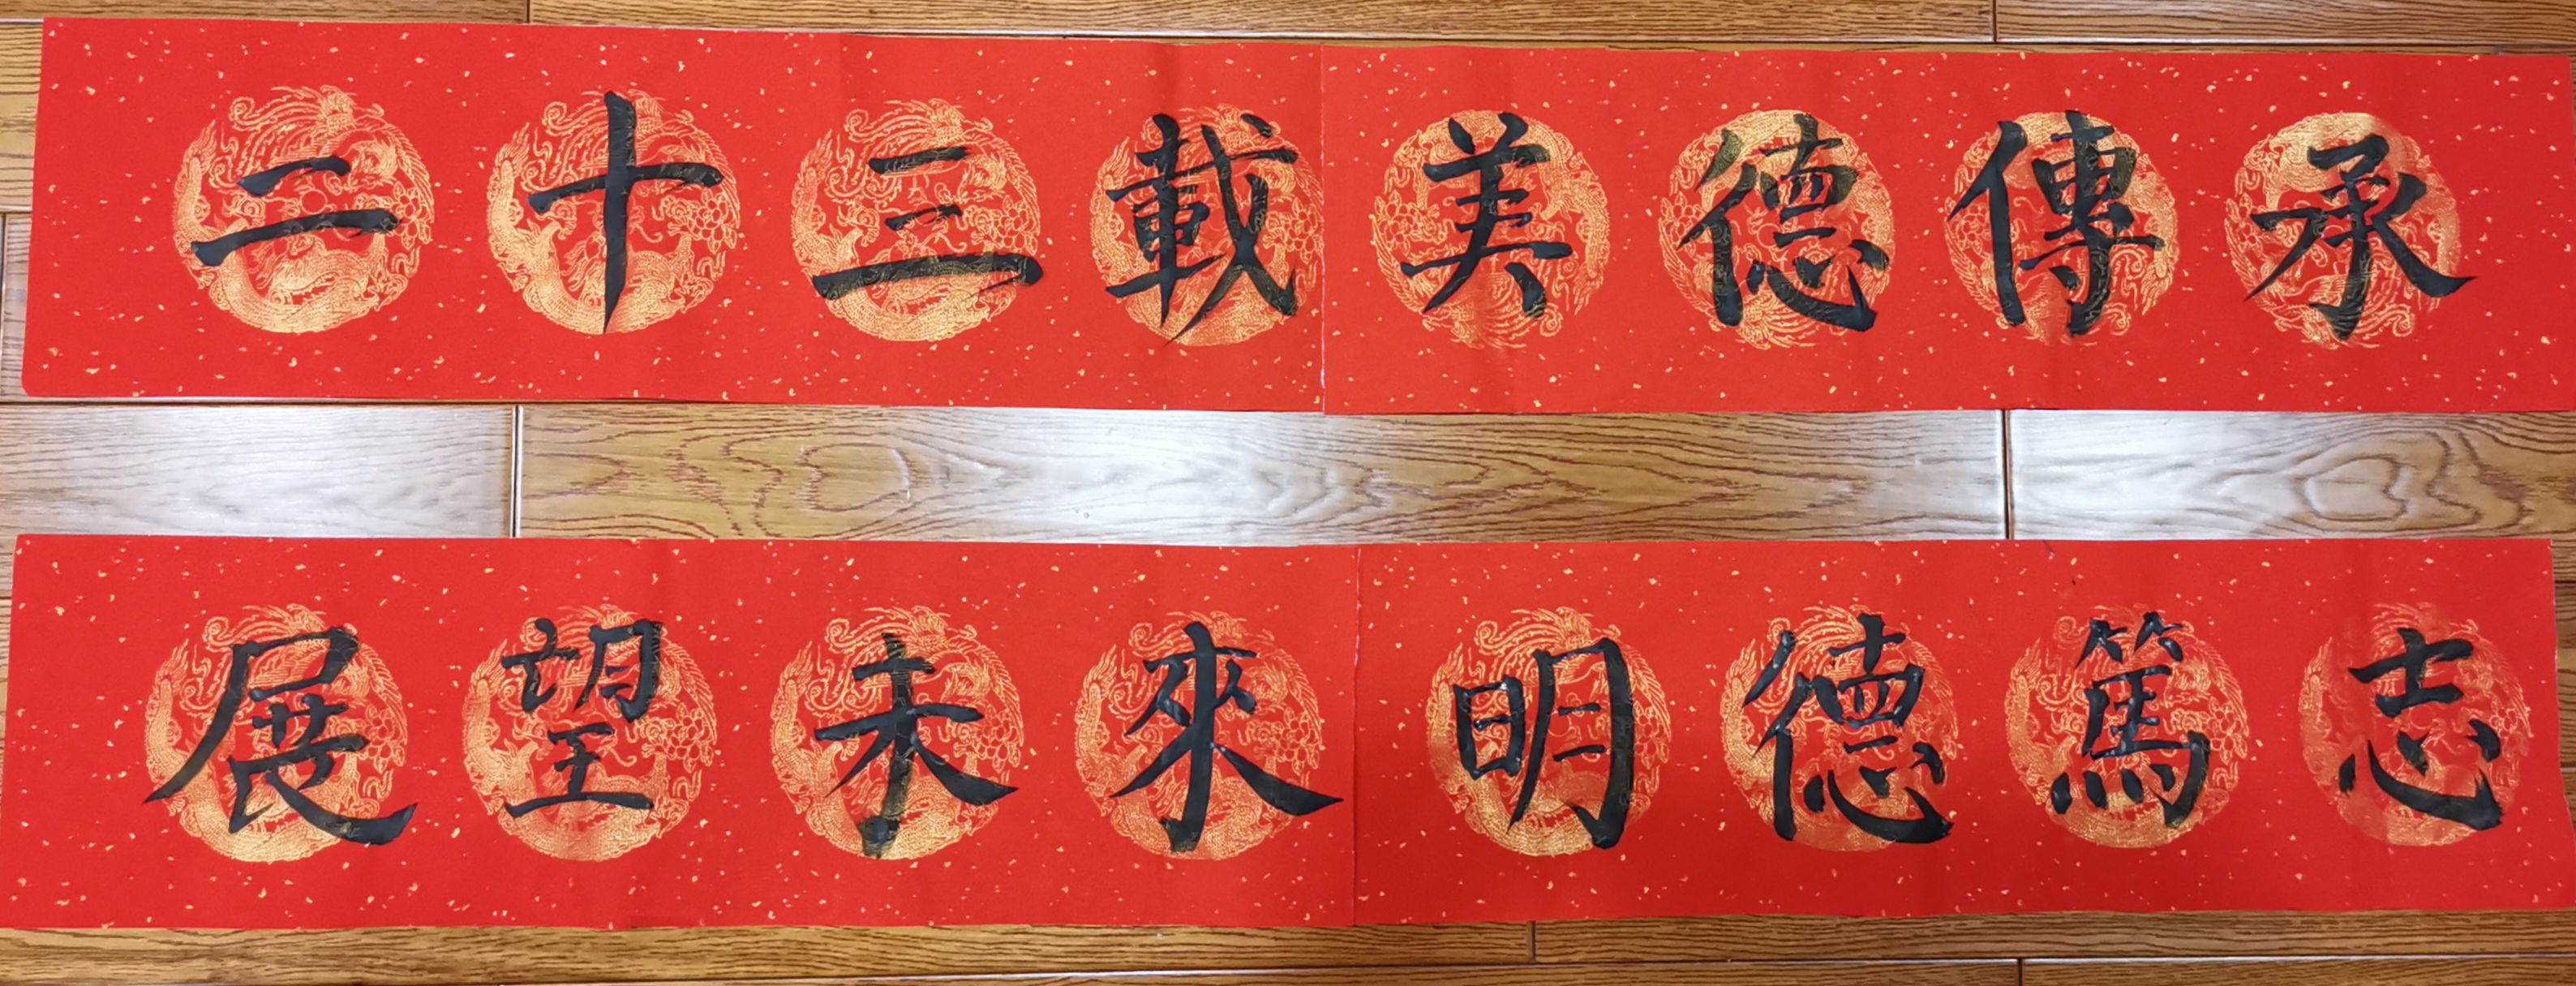 二十三載美德傳承
展望未來明德篤志